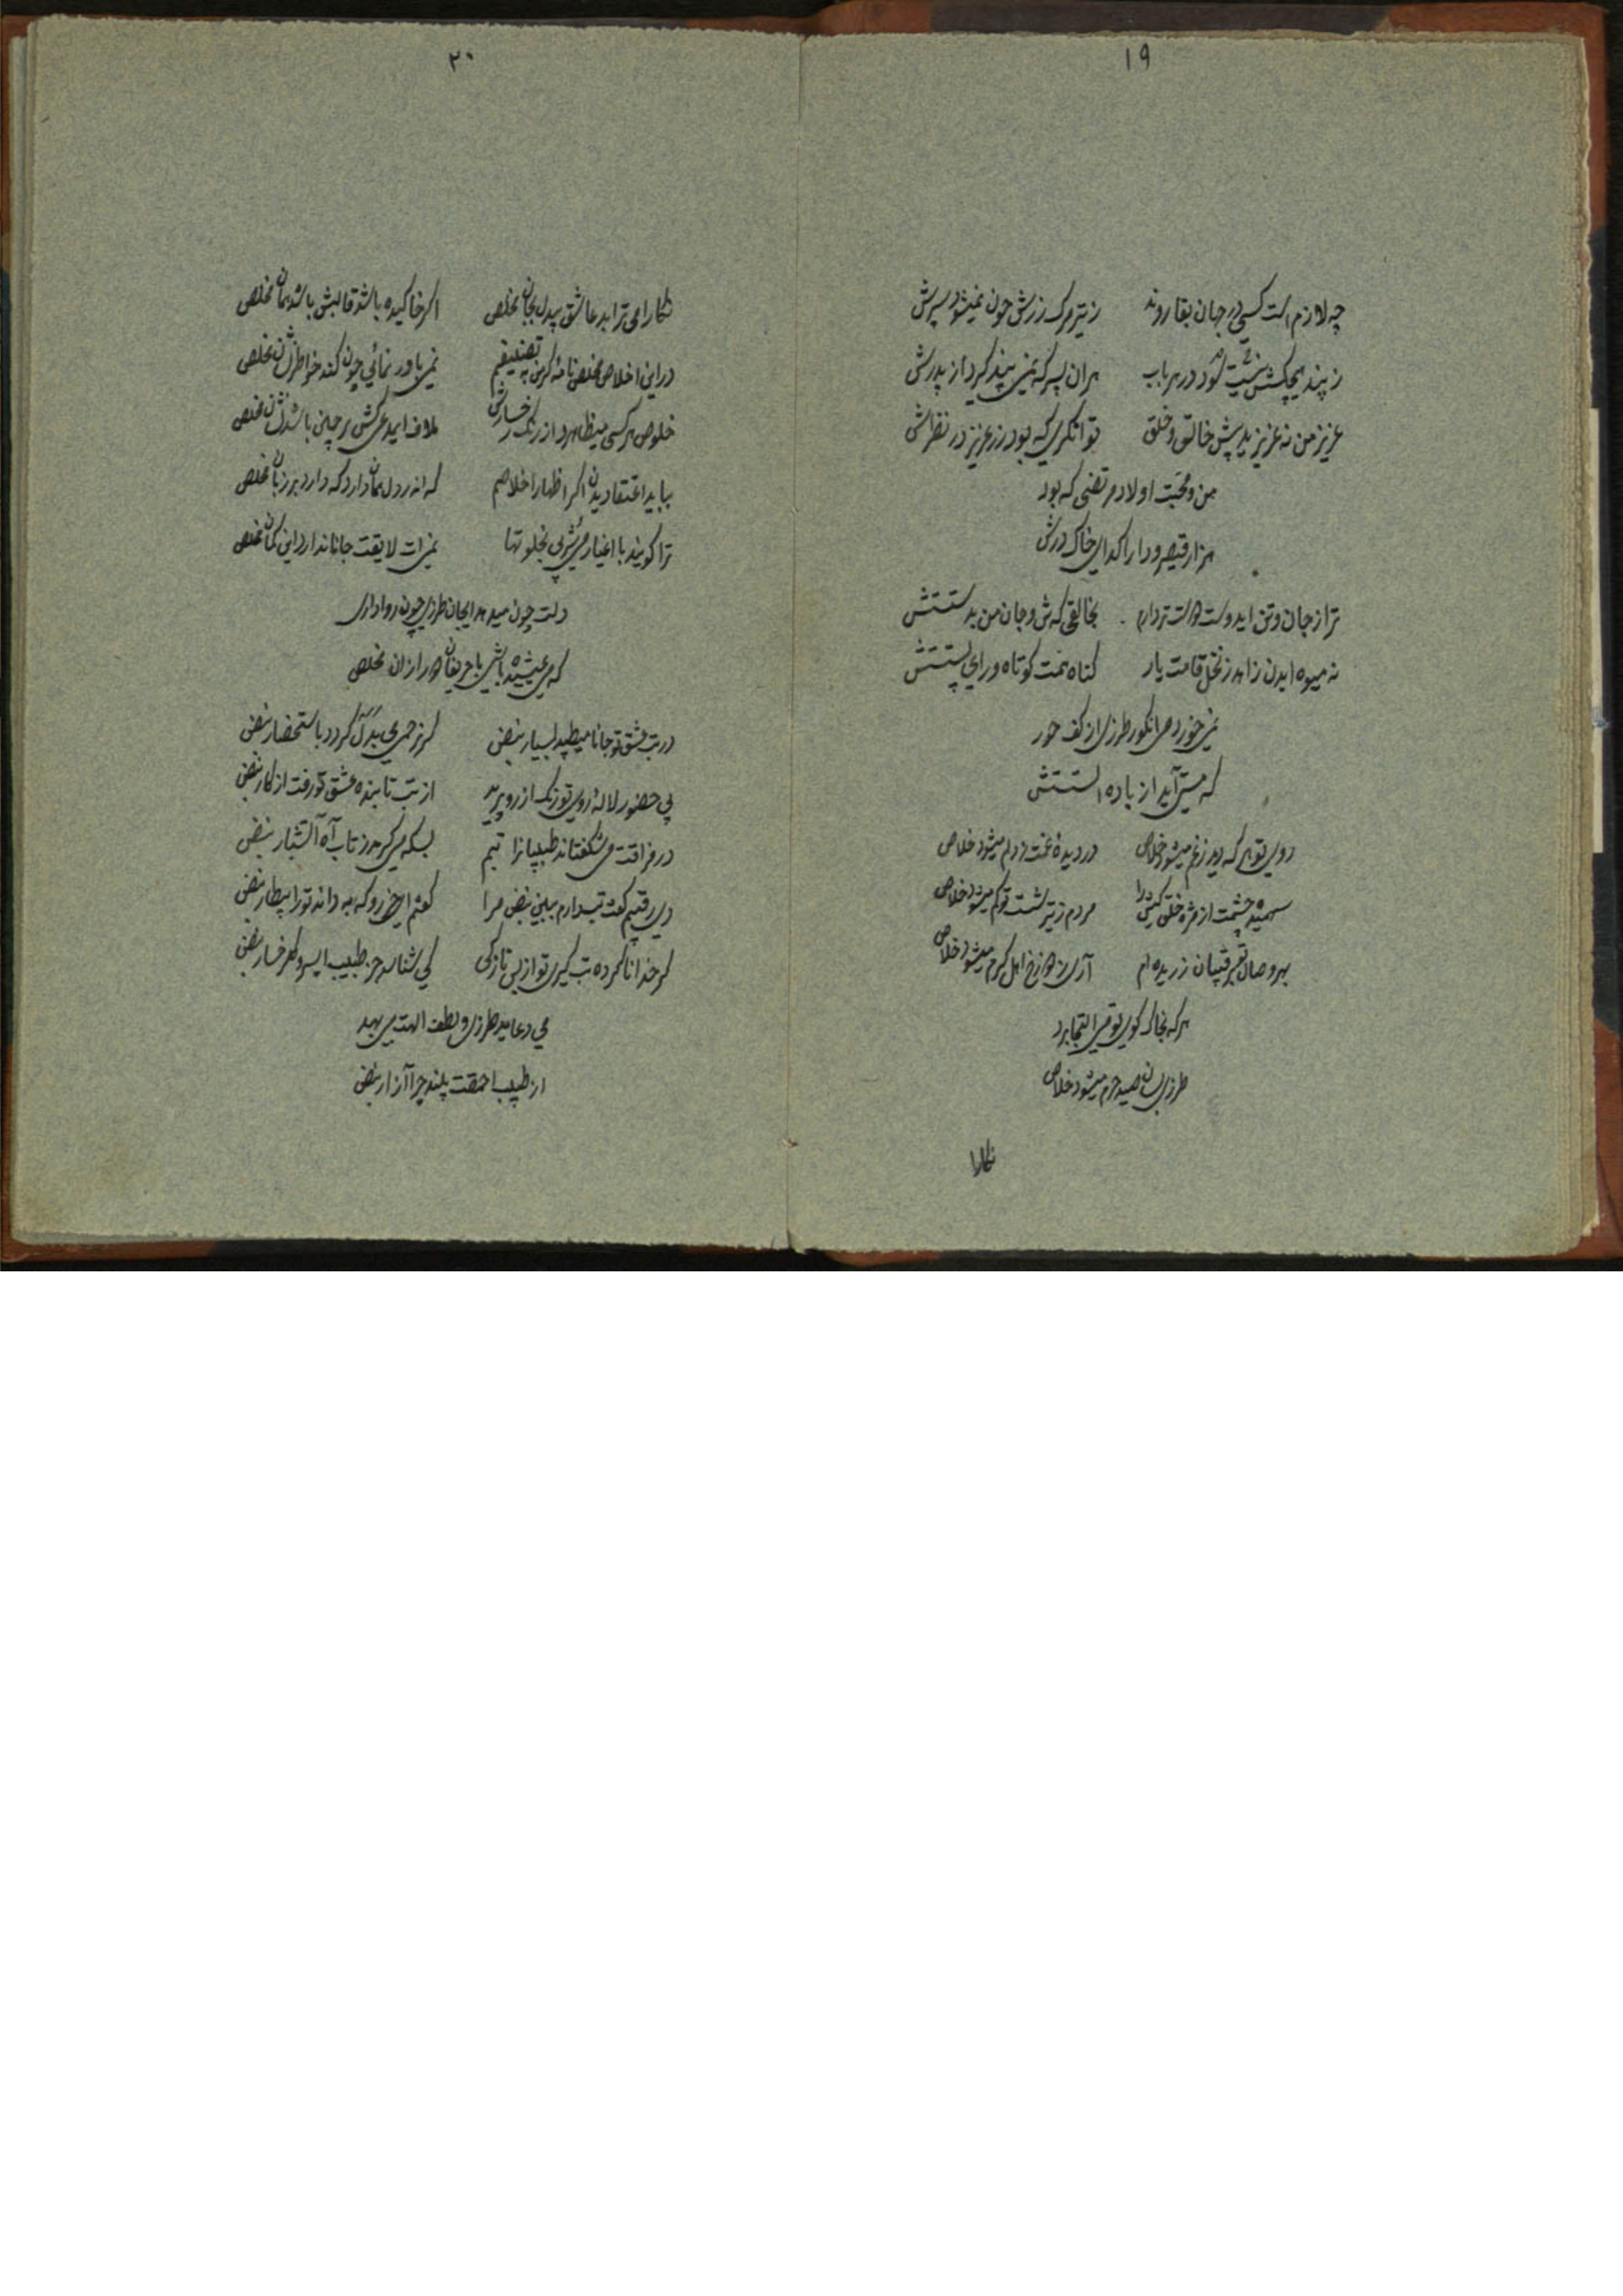 ۱۹
چه لازم است کسی در جهان بقا روند ز تیر مرک زرش چون نمیشود سپرش
ز پند هیچکسش نیست سود در هر باب هران پسر که نمی پند کرد از پدرش
عزیز من نه عزیز یه پیش خالق و خلق توانکری که بود زر عزیز در نظرش
من و محبت اولاد مرتضی که بود
هزار قیصر و دارا کدای خاک درش
ترا از جان و تن ایدوست دوست تر دارم بخالقی که تن و جان من بدستتش
نه میوه ایدن زاهد ز نخل قامت یار کناه همت کوتاه و رای پستتش
نمی خورد می انکور طرزی از کف حور
که مستی آید از باده الستتش
روی تو هر که دید ز غم میشود خلاص در دیده غمت ز دلم میشود خلاص
چشمت از مژه خلق مردم ز تیر شست تو کم میشود خلاص
بهر وصال رقیبان زریده ام آری ز دوزخ اهل کرم میشود خلاص
هر که بخاک کوی تو می التجا برد
طرزی بسان صید حرم میشود خلاص
نکارا
۲۰
نکارا می ترا بد عاشق بیدل بجان مخلص اکر خاکیده باشد قالبش باشد همان مخلص
در این اخلاص مخلص نامه کر من به تصنیفم نمی باور نمائی چون کند خواطر مخلص
خلوص هر کسی میظاهرد از رنک رخسارش ملاف ایمدعی کش بر جبین باشد نشان مخلص
بباید اعتقادیدن اکر اظهار اخلاصم که اندر دل همان دارد که دارد بر زبان مخلص
ترا کویند با اغیار می شربی بخلوتها نمیزات لایقت جانا ندارد این کمان مخلص
دلت چون میدهد ایجان طرزی چون روا داری
که می عیشیده باشی با حریفان دور از ان مخلص
در تب عشق تو جانا میطپد بسیار نبض کر نر حمی بدل کردد باستحضار نبض
بی حضور لاله روی تو رنک از رو پرید از تب تابنده عشق تو رفت از کار نبض
در فراقت می شکفتاند طبیبانرا تبم بسکه می کرمد ز تاب آه آتشبار نبض
دی رقیبم کفت تب دارم ببین نبض مرا کفتم ای خر رو که به داند تورا بیطار نبض
کر خدا ناکرده تب کیری تو از بس نازکی کی شناسد جز طبیب ایسرو کلرخسار نبض
می دعاید طرزی و لطف الهت می بهد
از طبیب احمقت بلند چرا آزار نبض